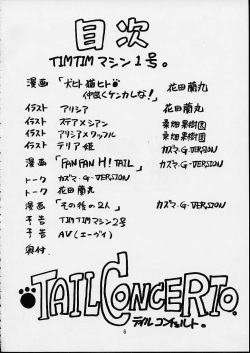 目次
TIMTIMマシン1号。
漫画 「犬ヒト猫ヒト
仲良くケンカしな!」 花田蘭丸
イラスト アリシア 花田蘭丸
イラスト ステア×シアン 桑畑果樹園
イラスト アリシア×ワッフル 桑畑果樹園
イラスト テリア姫 カズマ・G-VERSION
漫画 「FANFAN H!TAIL」 カズマ・G-VERSION
トーク カズマ・G-VERSION
トーク 花田蘭丸
漫画 「その後の2人」 カズマ・G-VERSION
予告 TIMTIMマシン2号
予告 AV(エーヴイ)
奥付
TAIL CONCERTO。
テイルコンチェルト。
6